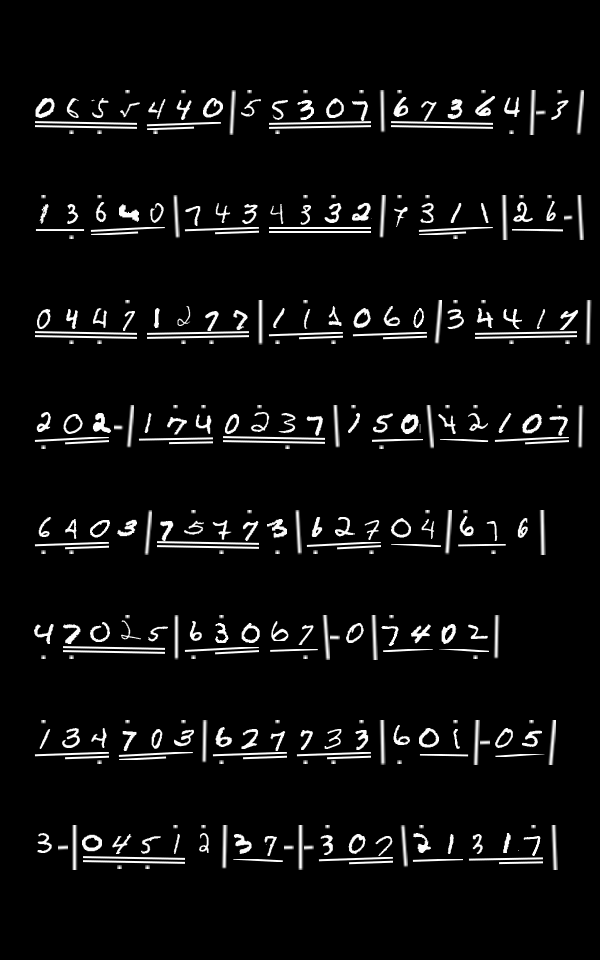 0655440|5307|67364|-3|
13640|7434332|7311|26-|
04471277|111060|34417|
202-|1740237|150|42107|
6403|75773|62704|676|
47025|63067|-0|7402|
134703|627733|601|-05|
3-|04512|37-|-307|21317|